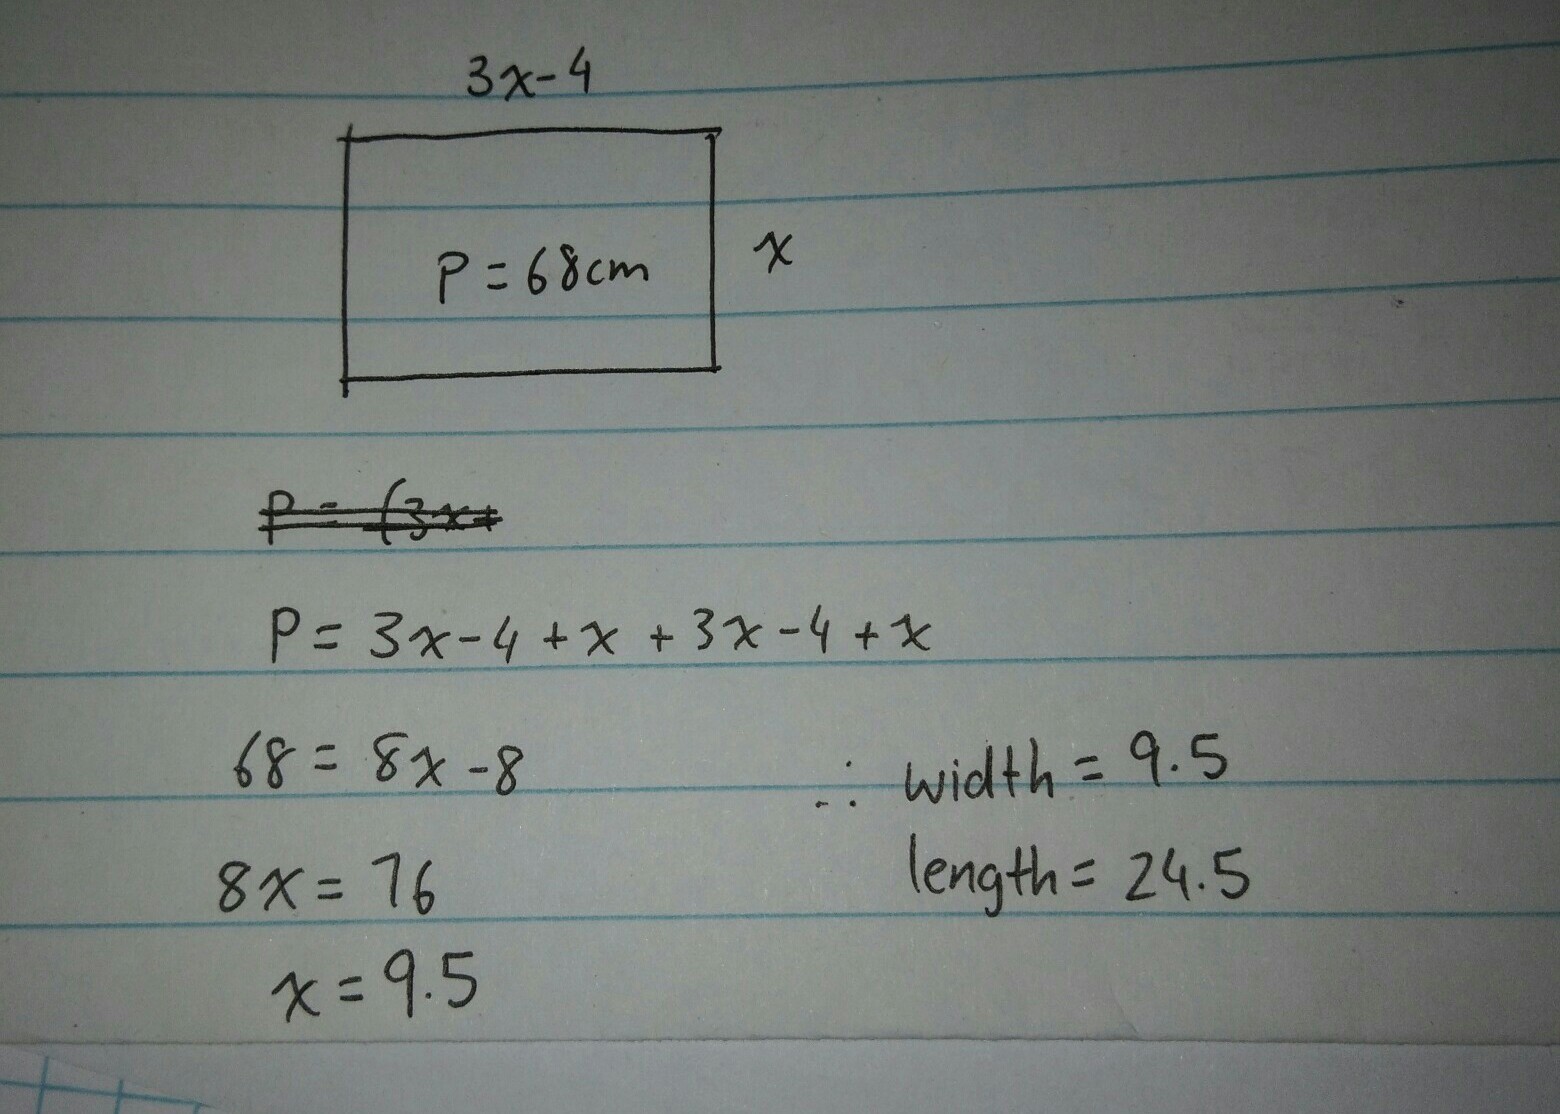 3x-4
P = 68cm
x
P = (3x+
P = 3x-4 + x + 3x-4 + x
68 = 8x -8
8x = 76
x = 9.5
∴ width = 9.5
length = 24.5